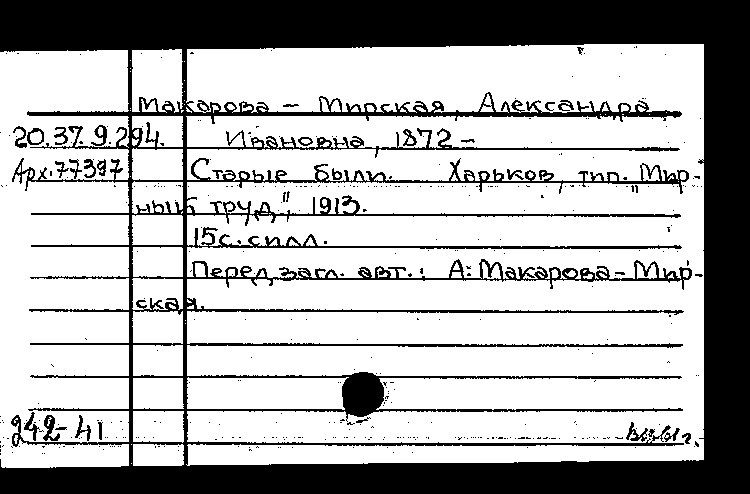 Макарова – Мирская, Александра
20.37.9.294. Ивановна, 1872 –
Арх.77397 Старые были. Харьков, тип. "Мир-
ный труд", 1913.
15с. с илл.
Перед загл. авт.: А. Макарова-Мир-
ская.
242-41